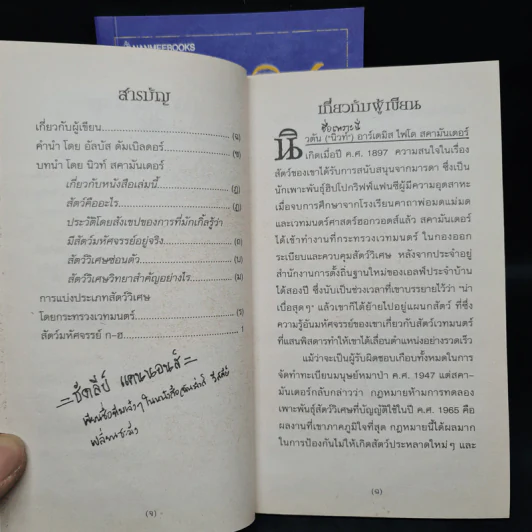 NANMEEBOOKS
สารบัญ
เกี่ยวกับผู้เขียน
คำนำ โดย อัลบัส ดัมเบิลดอร์
บทนำ โดย นิวท์ สคามันเดอร์
เกี่ยวกับหนังสือเล่มนี้
สัตว์คืออะไร
ประวัติโดยสังเขปของการที่มักเกิ้ลรู้ว่า
มีสัตว์มหัศจรรย์อยู่จริง
สัตว์วิเศษซ่อนตัว
สัตว์วิเศษวิทยาสำคัญอย่างไร
การแบ่งประเภทสัตว์วิเศษ
โดยกระทรวงเวทมนตร์
สัตว์มหัศจรรย์ ก-ฮ 1
เกี่ยวกับผู้เขียน
นิวตัน ("นิวท์") อาร์เตมิส ไฟโด สคามันเดอร์
เกิดเมื่อปี ค.ศ. 1897 ความสนใจในเรื่อง
สัตว์ของเขาได้รับการสนับสนุนจากมารดา ซึ่งเป็น
นักเพาะพันธุ์ฮิปโปกริฟฟ์แฟนซีผู้มีความอุตสาหะ
เมื่อจบการศึกษาจากโรงเรียนคาถาพ่อมดแม่มด
และเวทมนตร์ศาสตร์ฮอกวอตส์แล้ว สคามันเดอร์
ได้เข้าทำงานที่กระทรวงเวทมนตร์ ในกองออก
ระเบียบและควบคุมสัตว์วิเศษ หลังจากประจำอยู่
สำนักงานการตั้งถิ่นฐานใหม่ของเอลฟ์ประจำบ้าน
ได้สองปี ซึ่งนับเป็นช่วงเวลาที่เขาบรรยายไว้ว่า "น่า
เบื่อสุดๆ" แล้วเขาก็ได้ย้ายไปอยู่แผนกสัตว์ ที่ซึ่ง
ความรู้อันมหัศจรรย์ของเขาเกี่ยวกับสัตว์เวทมนตร์
ที่แสนพิสดารทำให้เขาได้เลื่อนตำแหน่งอย่างรวดเร็ว
แม้ว่าจะเป็นผู้รับผิดชอบเกือบทั้งหมดในการ
จัดทำทะเบียนมนุษย์หมาป่า ค.ศ. 1947 แต่สคา-
มันเดอร์กลับกล่าวว่า กฎหมายห้ามการทดลอง
เพาะพันธุ์สัตว์วิเศษที่บัญญัติใช้ในปี ค.ศ. 1965 คือ
ผลงานที่เขาภาคภูมิใจที่สุด กฎหมายนี้ได้ผลมาก
ในการป้องกันไม่ให้เกิดสัตว์ประหลาดใหม่ๆ และ